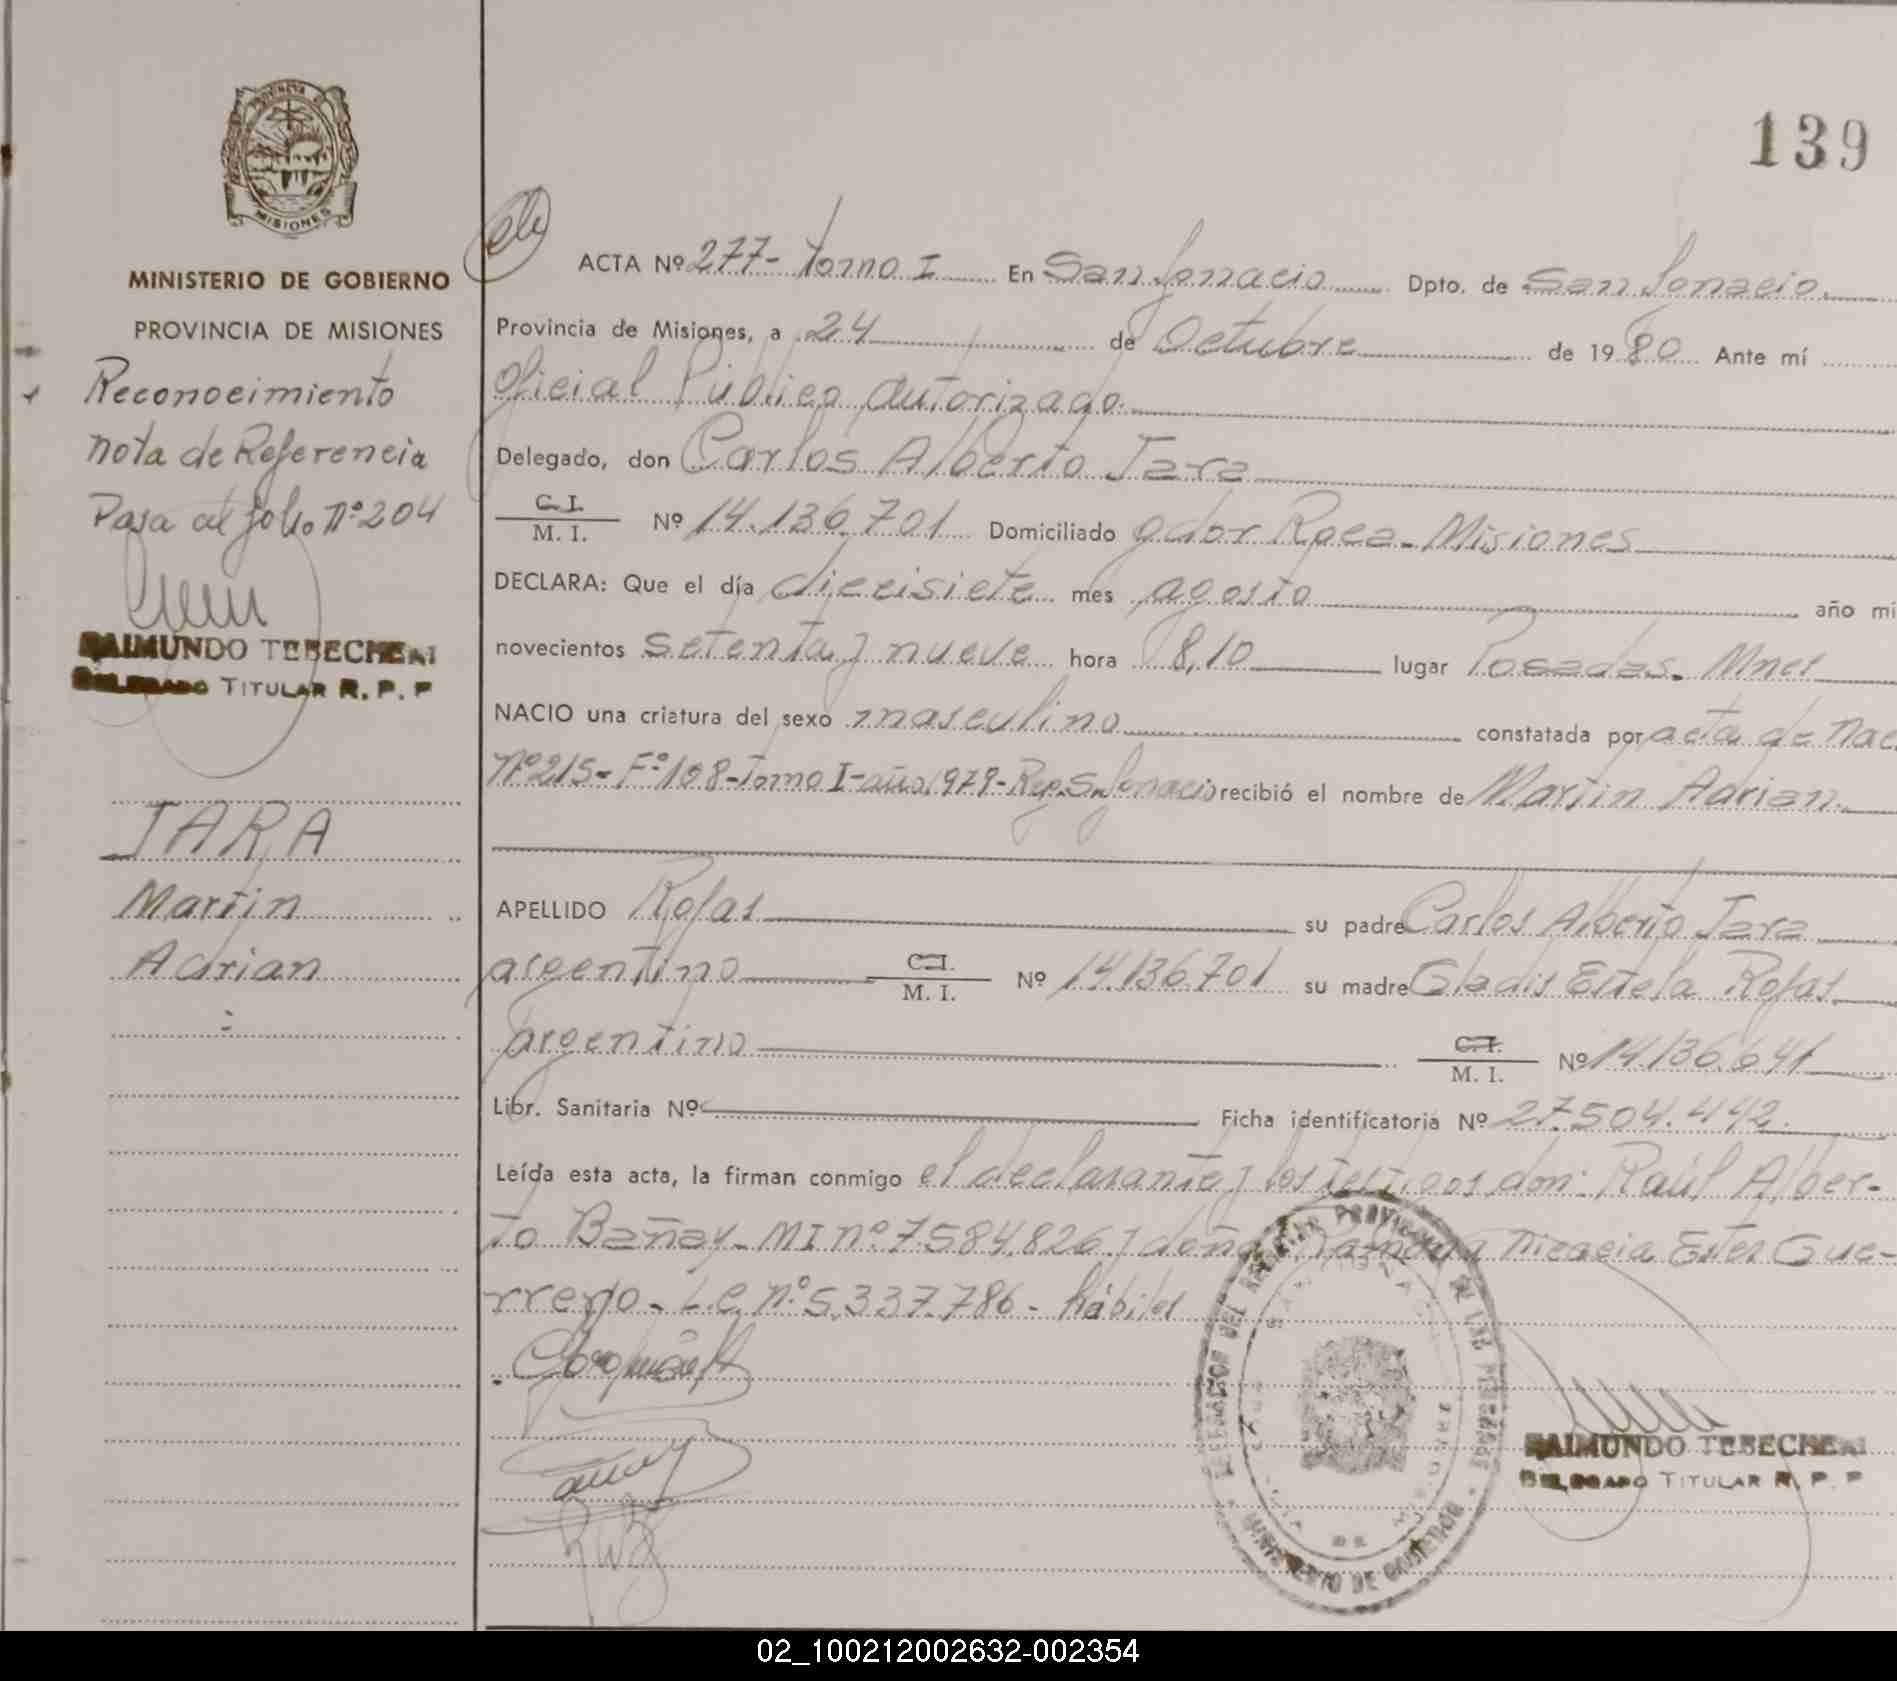 139
PROVINCIA DE
MISIONES
MINISTERIO DE GOBIERNO
PROVINCIA DE MISIONES
Reconocimiento
nota de Referencia
Pasa al folio Nº 204
RAIMUNDO TEBECHERI
DELEGADO TITULAR R. P. P
JARA
Martin
Adrian
ACTA Nº 277- Tomo I En San Ignacio Dpto. de San Ignacio
Provincia de Misiones, a 24 de Octubre de 1980 Ante mí
Oficial Público autorizado
Delegado, don Carlos Alberto Jara
C. I.
M. I. Nº 14.136.701 Domiciliado gdor Roca - Misiones
DECLARA: Que el día diecisiete mes agosto año mi
novecientos setenta y nueve hora 8,10 lugar Posadas - Mnes
NACIO una criatura del sexo masculino constatada por acta de nac
Nº 215 - Fº 108 - Tomo I - año 1979 - Rep. S. Ignacio recibió el nombre de Martin Adrian
APELLIDO Rojas su padre Carlos Alberto Jara
argentino C.I. M. I. Nº 14.136.701 su madre Gladis Estela Rojas
argentino C.I. M. I. Nº 14.136.641
Libr. Sanitaria Nº Ficha identificatoria Nº 27.504.442
Leída esta acta, la firman conmigo el declarante y los testigos don: Raúl Alber-
to Bañay - MI nº 7.584.826 y doña Ramona Nicacia Ester Gue-
rrero - L.C. nº 5.337.786 - hábiles
DELEGACION DEL REGISTRO PROVINCIAL DE LAS PERSONAS
MINISTERIO DE GOBIERNO
RAIMUNDO TEBECHERI
DELEGADO TITULAR R. P. P
02_100212002632-002354